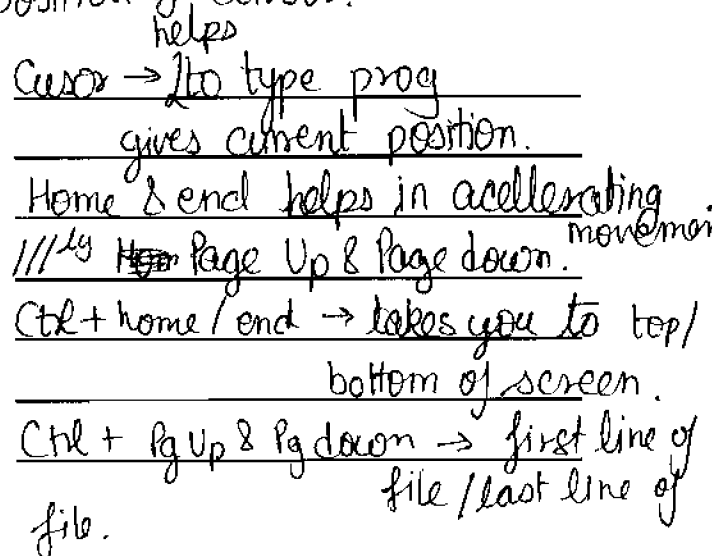 position of cursor.
helps
Cusor → to type prog
gives current position.
Home & end helps in acellerating
movemen
///ly Page Up & Page down.
Ctrl + home / end → takes you to top/
bottom of screen.
Ctrl + Pg Up & Pg down → first line of
file / last line of
file.